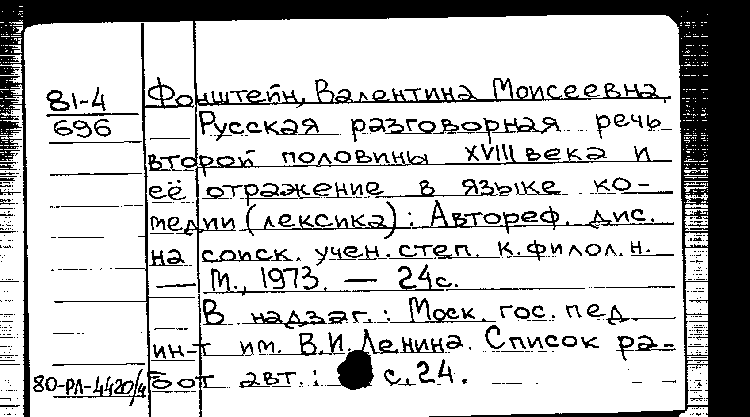 81-4
696
Фонштейн, Валентина Моисеевна.
Русская разговорная речь
второй половины XVIII века и
её отражение в языке ко-
медии (лексика) : Автореф. дис.
на соиск. учен. степ. к. филол. н.
— М., 1973. — 24 с.
В надзаг. : Моск. гос. пед.
ин-т им. В.И. Ленина. Список ра-
бот авт. : с. 24.
80-РЛ-4420/4